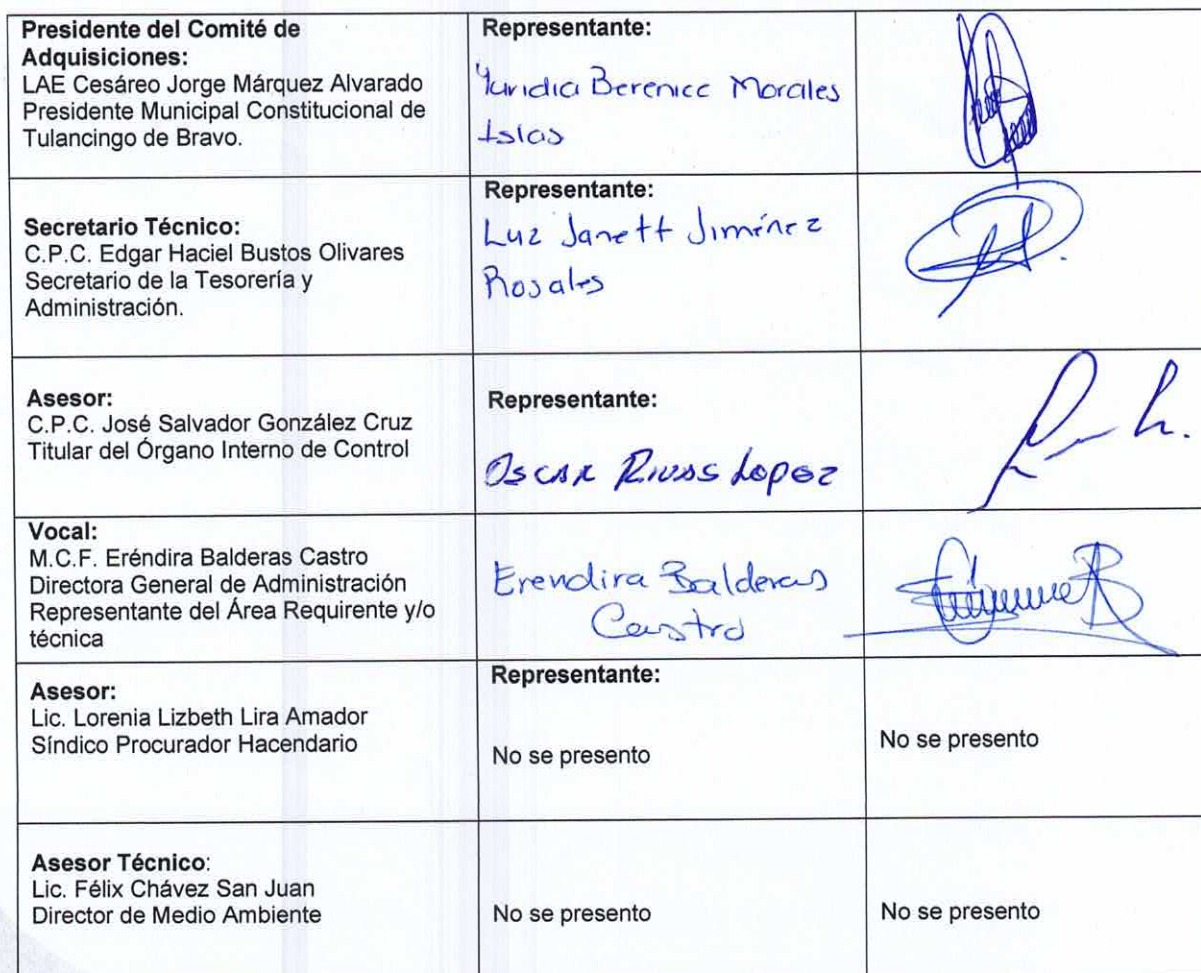 Presidente del Comité de
Adquisiciones:
LAE Cesáreo Jorge Márquez Alvarado
Presidente Municipal Constitucional de
Tulancingo de Bravo.
Representante:
Yuridia Berenice Morales
Islas
Secretario Técnico:
C.P.C. Edgar Haciel Bustos Olivares
Secretario de la Tesorería y
Administración.
Representante:
Luz Janett Jiménez
Rosales
Asesor:
C.P.C. José Salvador González Cruz
Titular del Órgano Interno de Control
Representante:
Oscar Rivas Lopez
Vocal:
M.C.F. Eréndira Balderas Castro
Directora General de Administración
Representante del Área Requirente y/o
técnica
Erendira Balderas
Castro
Asesor:
Lic. Lorenia Lizbeth Lira Amador
Síndico Procurador Hacendario
Representante:
No se presento
No se presento
Asesor Técnico:
Lic. Félix Chávez San Juan
Director de Medio Ambiente
No se presento
No se presento